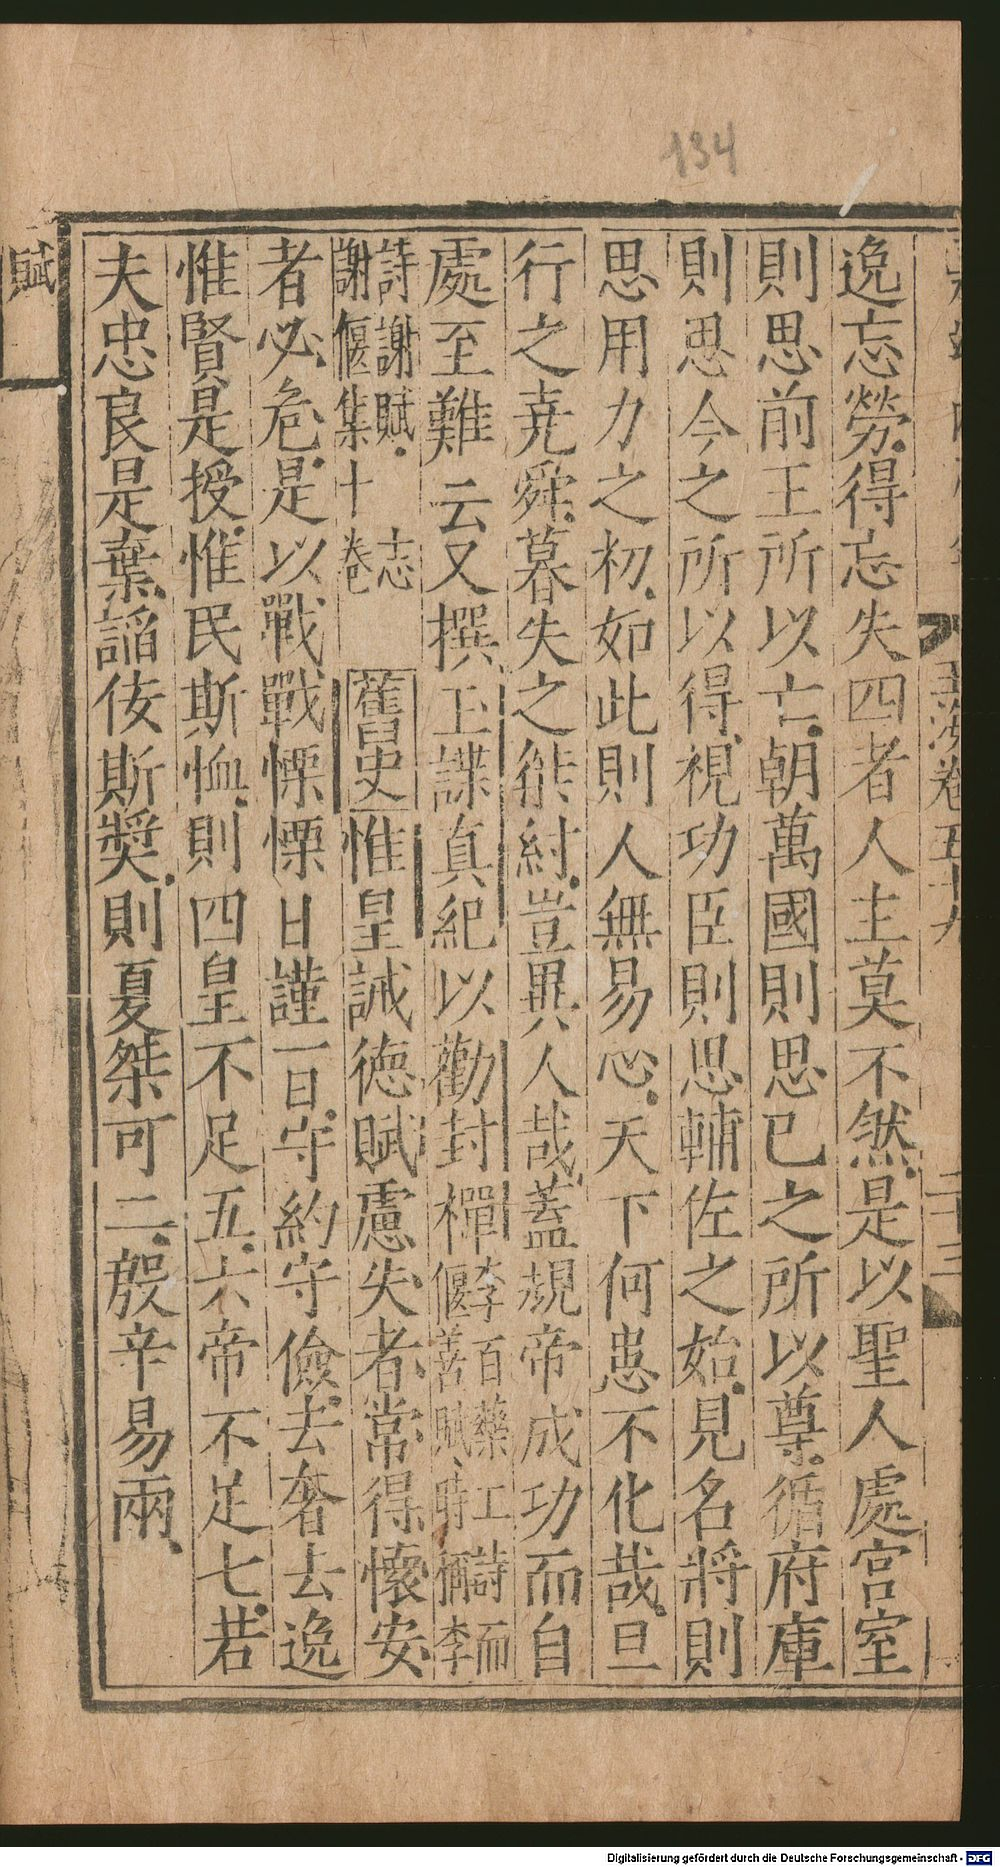 134
玉海卷五十九
二十三
逸忘勞得忘失四者人主莫不然是以聖人處宮室
則思前王所以亡朝萬國則思已之所以尊循府庫
則思今之所以得視功臣則思輔佐之始見名將則
思用力之初如此則人無易心天下何患不化哉旦
行之堯舜暮失之桀紂豈異人哉蓋規帝成功而自
處至難云又撰玉諜真紀以勸封禪李百藥工詩而
偃善賦時稱李
詩謝賦志
謝偃集十卷舊史惟皇誡德賦慮失者常得懷安
者必危是以戰戰慄慄日謹一日守約守儉去奢去逸
惟賢是授惟民斯恤則四皇不足五六帝不足七若
夫忠良是棄謟佞斯獎則夏桀可二殷辛易兩
賦
Digitalisierung gefördert durch die Deutsche Forschungsgemeinschaft - DFG